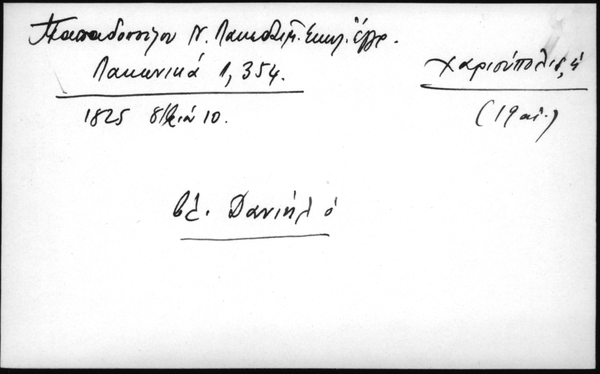 Παπαδοπούλου Ν. Λακεδαιμ. Εκκλ. έγγρ.
Λακωνικά 1, 354.
Χαριούπολις, ἡ
1825 8βρίου 10.
(19 αἰ.)
βλ. Δανιήλ ὁ